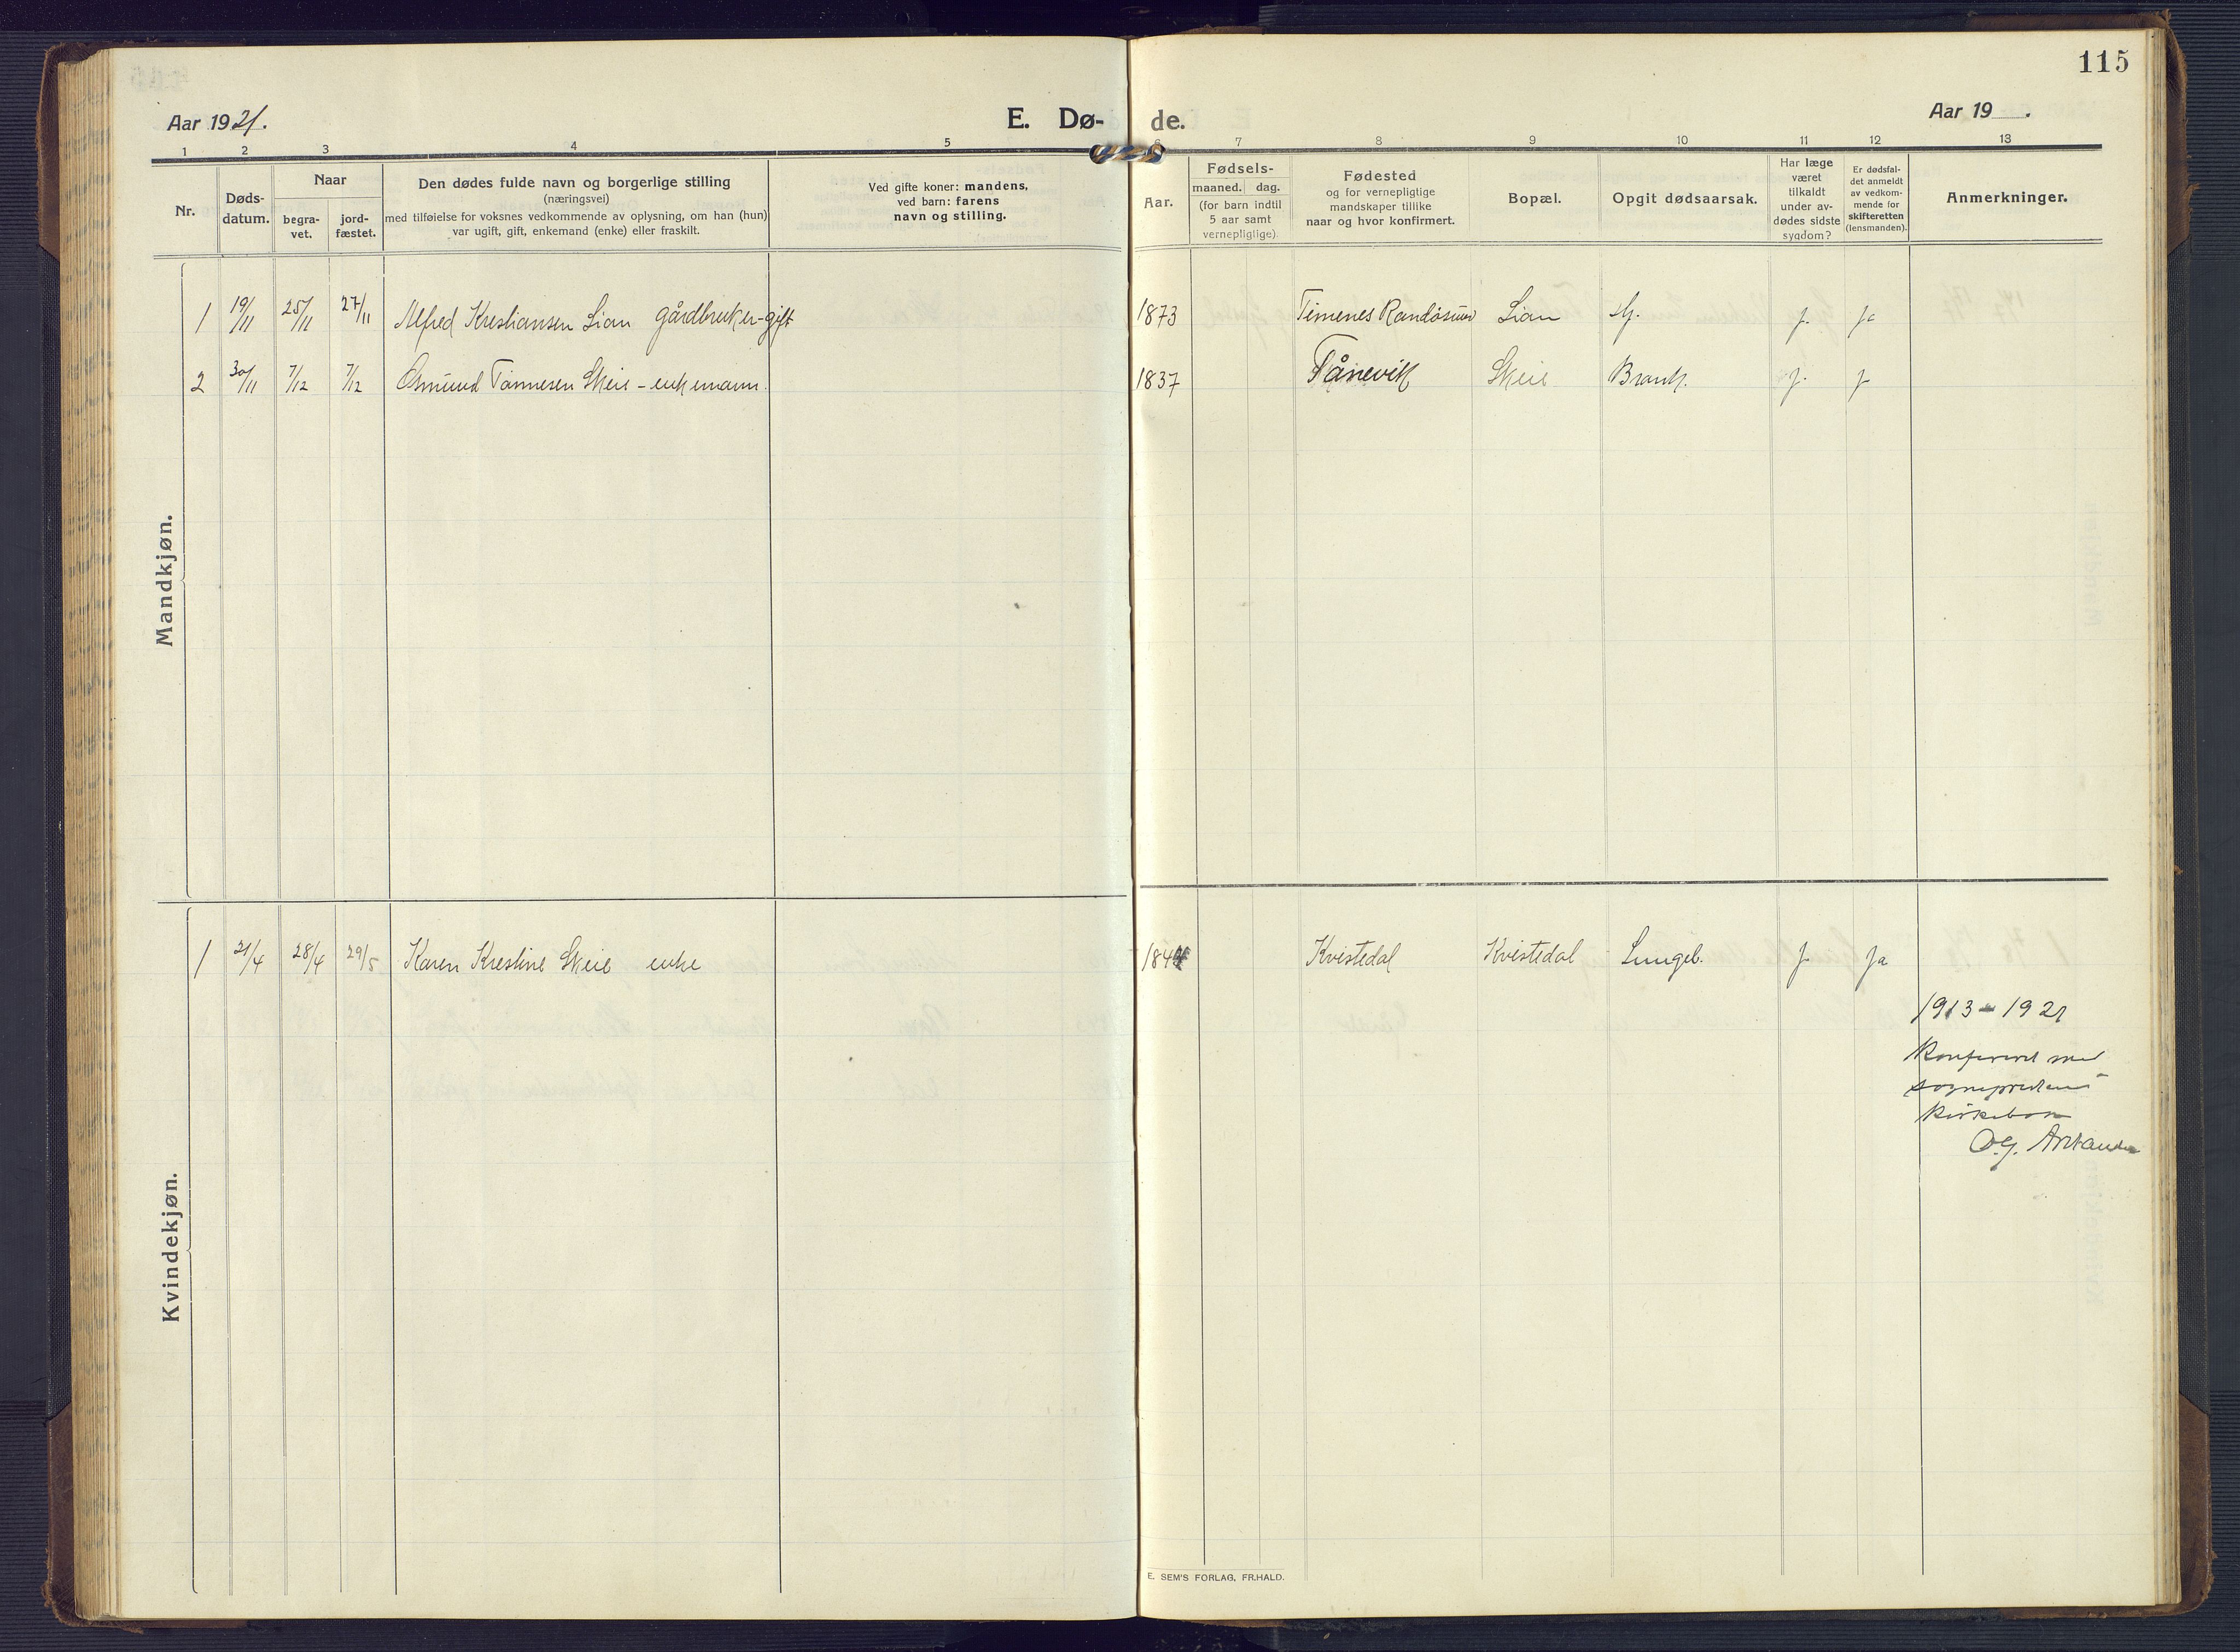 115
Aar 1921.
E. Dø-
de.
Aar 19 .
1 2 3 4 5 6 7 8 9 10 11 12 13
Nr.
Døds-
datum.
Naar
begra-
vet.
jord-
fæstet.
Den dødes fulde navn og borgerlige stilling
(næringsvei)
med tilføielse for voksnes vedkommende av oplysning, om han (hun)
var ugift, gift, enkemand (enke) eller fraskilt.
Ved gifte koner: mandens,
ved barn: farens
navn og stilling.
Aar.
Fødsels-
maaned. dag.
(for barn indtil
5 aar samt
vernepligtige).
Fødested
og for vernepligtige
mandskaper tillike
naar og hvor konfirmert.
Bopæl.
Opgit dødsaarsak.
Har læge
været
tilkaldt
under av-
dødes sidste
sygdom?
Er dødsfal-
det anmeldt
av vedkom-
mende for
skifteretten
(lensmanden).
Anmerkninger.
Mandkjøn.
1 19/11 25/11 27/11 Alfred Kristiansen Lian gårdbruker-gift 1873 Timenes Randøsund Lian j. ja
2 30/11 7/12 7/12 Osmund Tønnesen Skeie - enkemann. 1837 Tånevik Skeie Bronk. j. j
Kvindekjøn.
1 21/4 28/4 29/5 Karen Krestine Skeie enke Kvistedal Kvistedal Lungeb. j. ja
1913 - 1921
Konferert med
sogneprestens
kirkebok
O.G.
E. SEM'S FORLAG, FR.HALD.